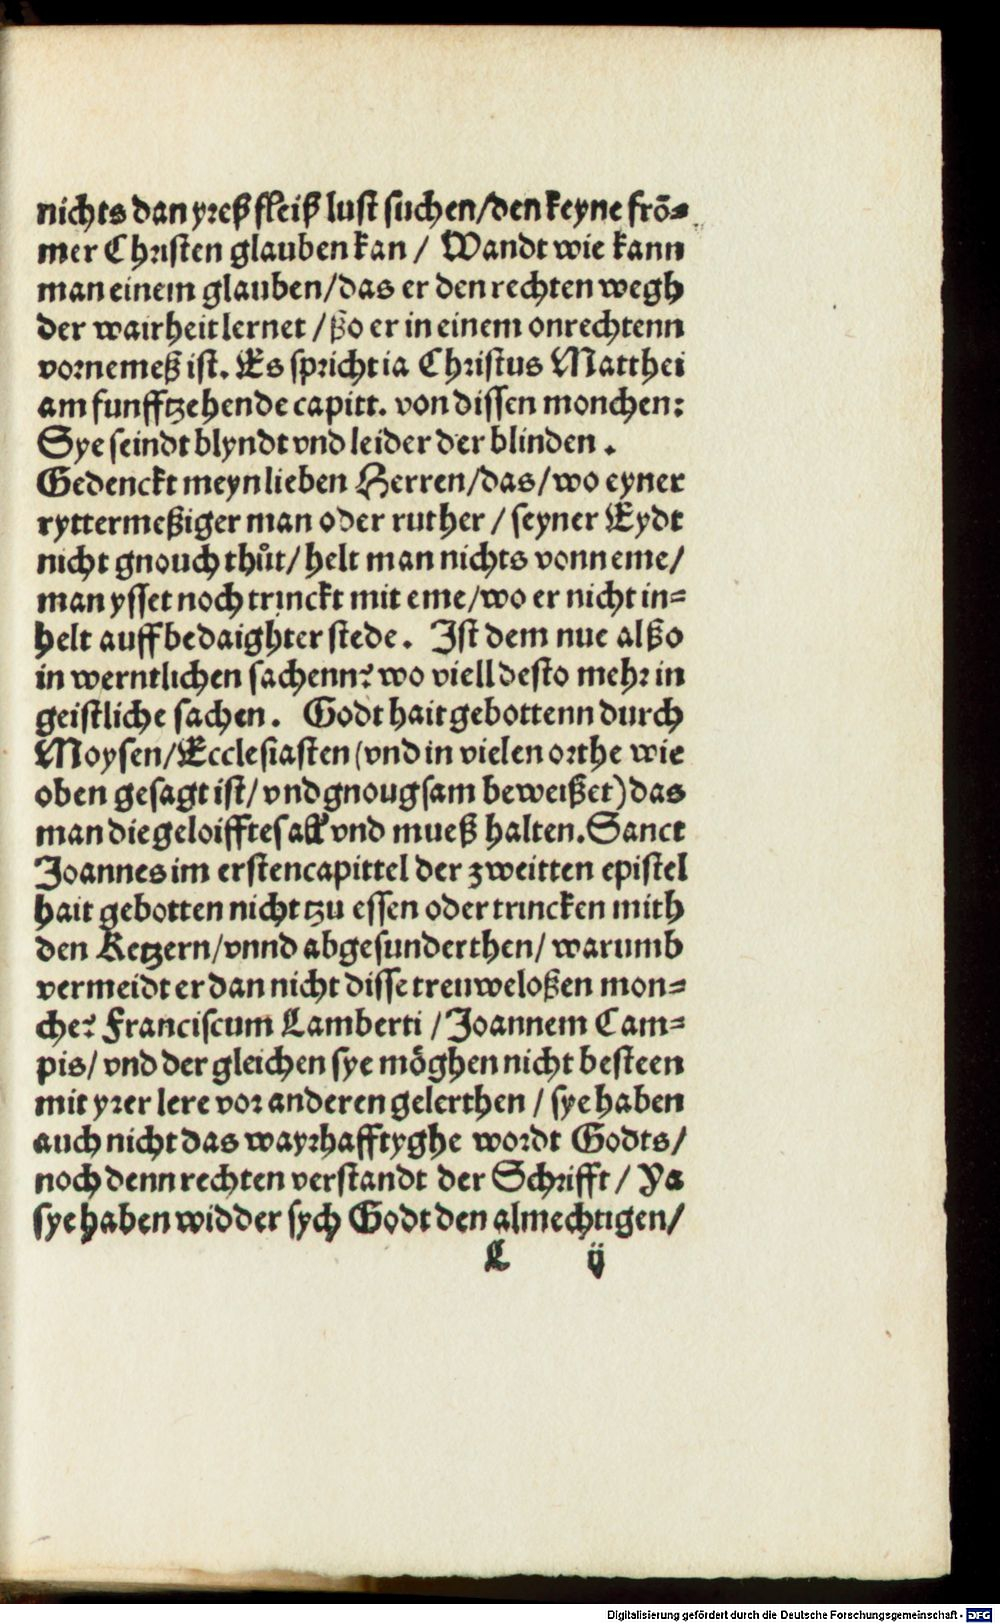 nichts dan yreß fleiß lust suchen/den keyne frõ⸗
mer Christen glauben kan / Wandt wie kann
man einem glauben/das er den rechten wegh
der wairheit lernet /ßo er in einem onrechtenn
vornemeß ist. Es spricht ia Christus Matthei
am funfftzehende capitt. von dissen monchen:
Sye seindt blyndt vnd leider der blinden .
Gedenckt meyn lieben Herren/das/wo eyner
ryttermeßiger man oder ruther / seyner Eydt
nicht gnouch thůt/ helt man nichts vonn eme/
man ysset noch trinckt mit eme/wo er nicht in⸗
helt auff bedaighter stede. Ist dem nue alßo
in werntlichen sachenn? wo viell desto mehr in
geistliche sachen. Godt hait gebottenn durch
Moysen/Ecclesiasten (vnd in vielen orthe wie
oben gesagt ist/ vnd gnougsam beweißet) das
man die geloifftes all vnd mueß halten. Sanct
Joannes im ersten capittel der zweitten epistel
hait gebotten nicht tzu essen oder trincken mith
den Ketzern/vnnd abgesunderthen/ warumb
vermeidt er dan nicht disse treuweloßen mon⸗
che? Franciscum Lamberti / Joannem Cam⸗
pis/ vnd der gleichen sye mőghen nicht besteen
mit yrer lere vor anderen gelerthen / sye haben
auch nicht das wayrhafftyghe wordt Godts/
noch denn rechten verstandt der Schrifft / Ya
sye haben widder sych Godt den almechtigen/
L ij
Digitalisierung gefördert durch die Deutsche Forschungsgemeinschaft - DFG